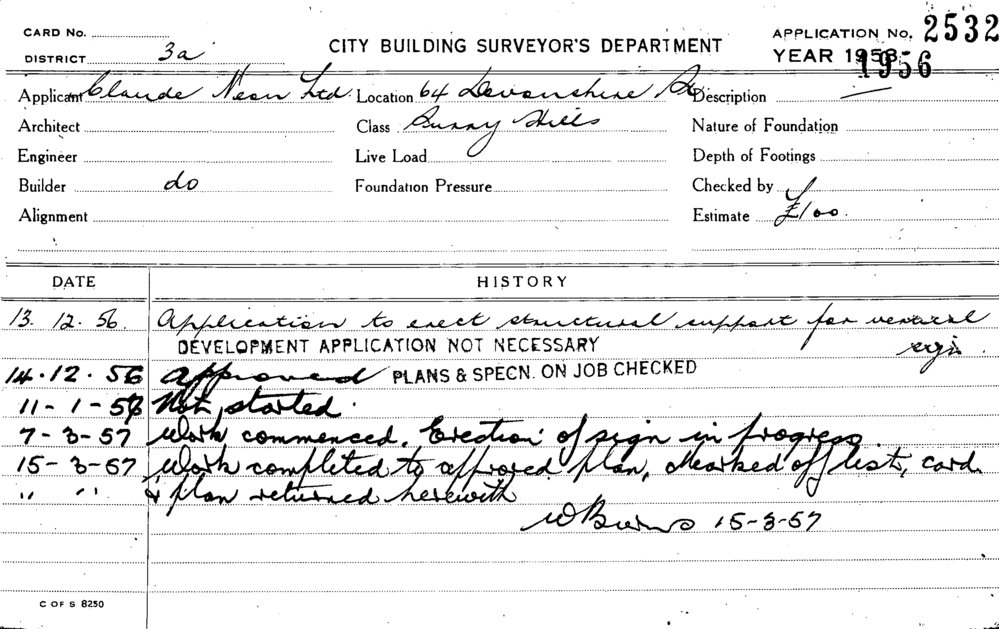 CARD No.
DISTRICT 3a
CITY BUILDING SURVEYOR'S DEPARTMENT
APPLICATION No. 2532
YEAR 1956
Applicant Claude Neon Ltd. Location 64 Devonshire St Description —
Architect Class Surry Hills Nature of Foundation
Engineer Live Load Depth of Footings
Builder do Foundation Pressure Checked by
Alignment Estimate £100.
DATE HISTORY
13. 12. 56. Application to erect structural support for vertical
sign.
DEVELOPMENT APPLICATION NOT NECESSARY
14.12.56 Approved PLANS & SPECN. ON JOB CHECKED
11-1-57 Not started.
7-3-57 Work commenced. Erection of sign in progress.
15-3-57 Work completed to approved plan, Marked off list, card
" " & plan returned herewith
15-3-57
C OF S 8250